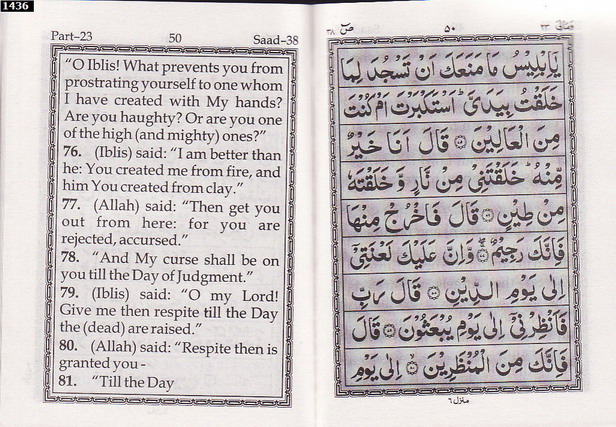 1436
Part–23 50 Saad–38
“O Iblis! What prevents you from
prostrating yourself to one whom
I have created with My hands?
Are you haughty? Or are you one
of the high (and mighty) ones?”
76. (Iblis) said: “I am better than
he: You created me from fire, and
him You created from clay.”
77. (Allah) said: “Then get you
out from here: for you are
rejected, accursed.”
78. “And My curse shall be on
you till the Day of Judgment.”
79. (Iblis) said: “O my Lord!
Give me then respite till the Day
the (dead) are raised.”
80. (Allah) said: “Respite then is
granted you -
81. “Till the Day
صٓ ٣٨ ٥٠ ٢٣
يٰٓاِبْلِيْسُ مَا مَنَعَكَ اَنْ تَسْجُدَ لِمَا
خَلَقْتُ بِيَدَيَّ ؕ اَسْتَكْبَرْتَ اَمْ كُنْتَ
مِنَ الْعَالِيْنَ قَالَ اَنَا خَيْرٌ
مِّنْهُ ؕ خَلَقْتَنِيْ مِنْ نَّارٍ وَّ خَلَقْتَهٗ
مِنْ طِيْنٍ قَالَ فَاخْرُجْ مِنْهَا
فَاِنَّكَ رَجِيْمٌ وَّاِنَّ عَلَيْكَ لَعْنَتِيْٓ
اِلٰى يَوْمِ الدِّيْنِ قَالَ رَبِّ
فَاَنْظِرْنِيْٓ اِلٰى يَوْمِ يُبْعَثُوْنَ قَالَ
فَاِنَّكَ مِنَ الْمُنْظَرِيْنَ اِلٰى يَوْمِ
منزل ٦